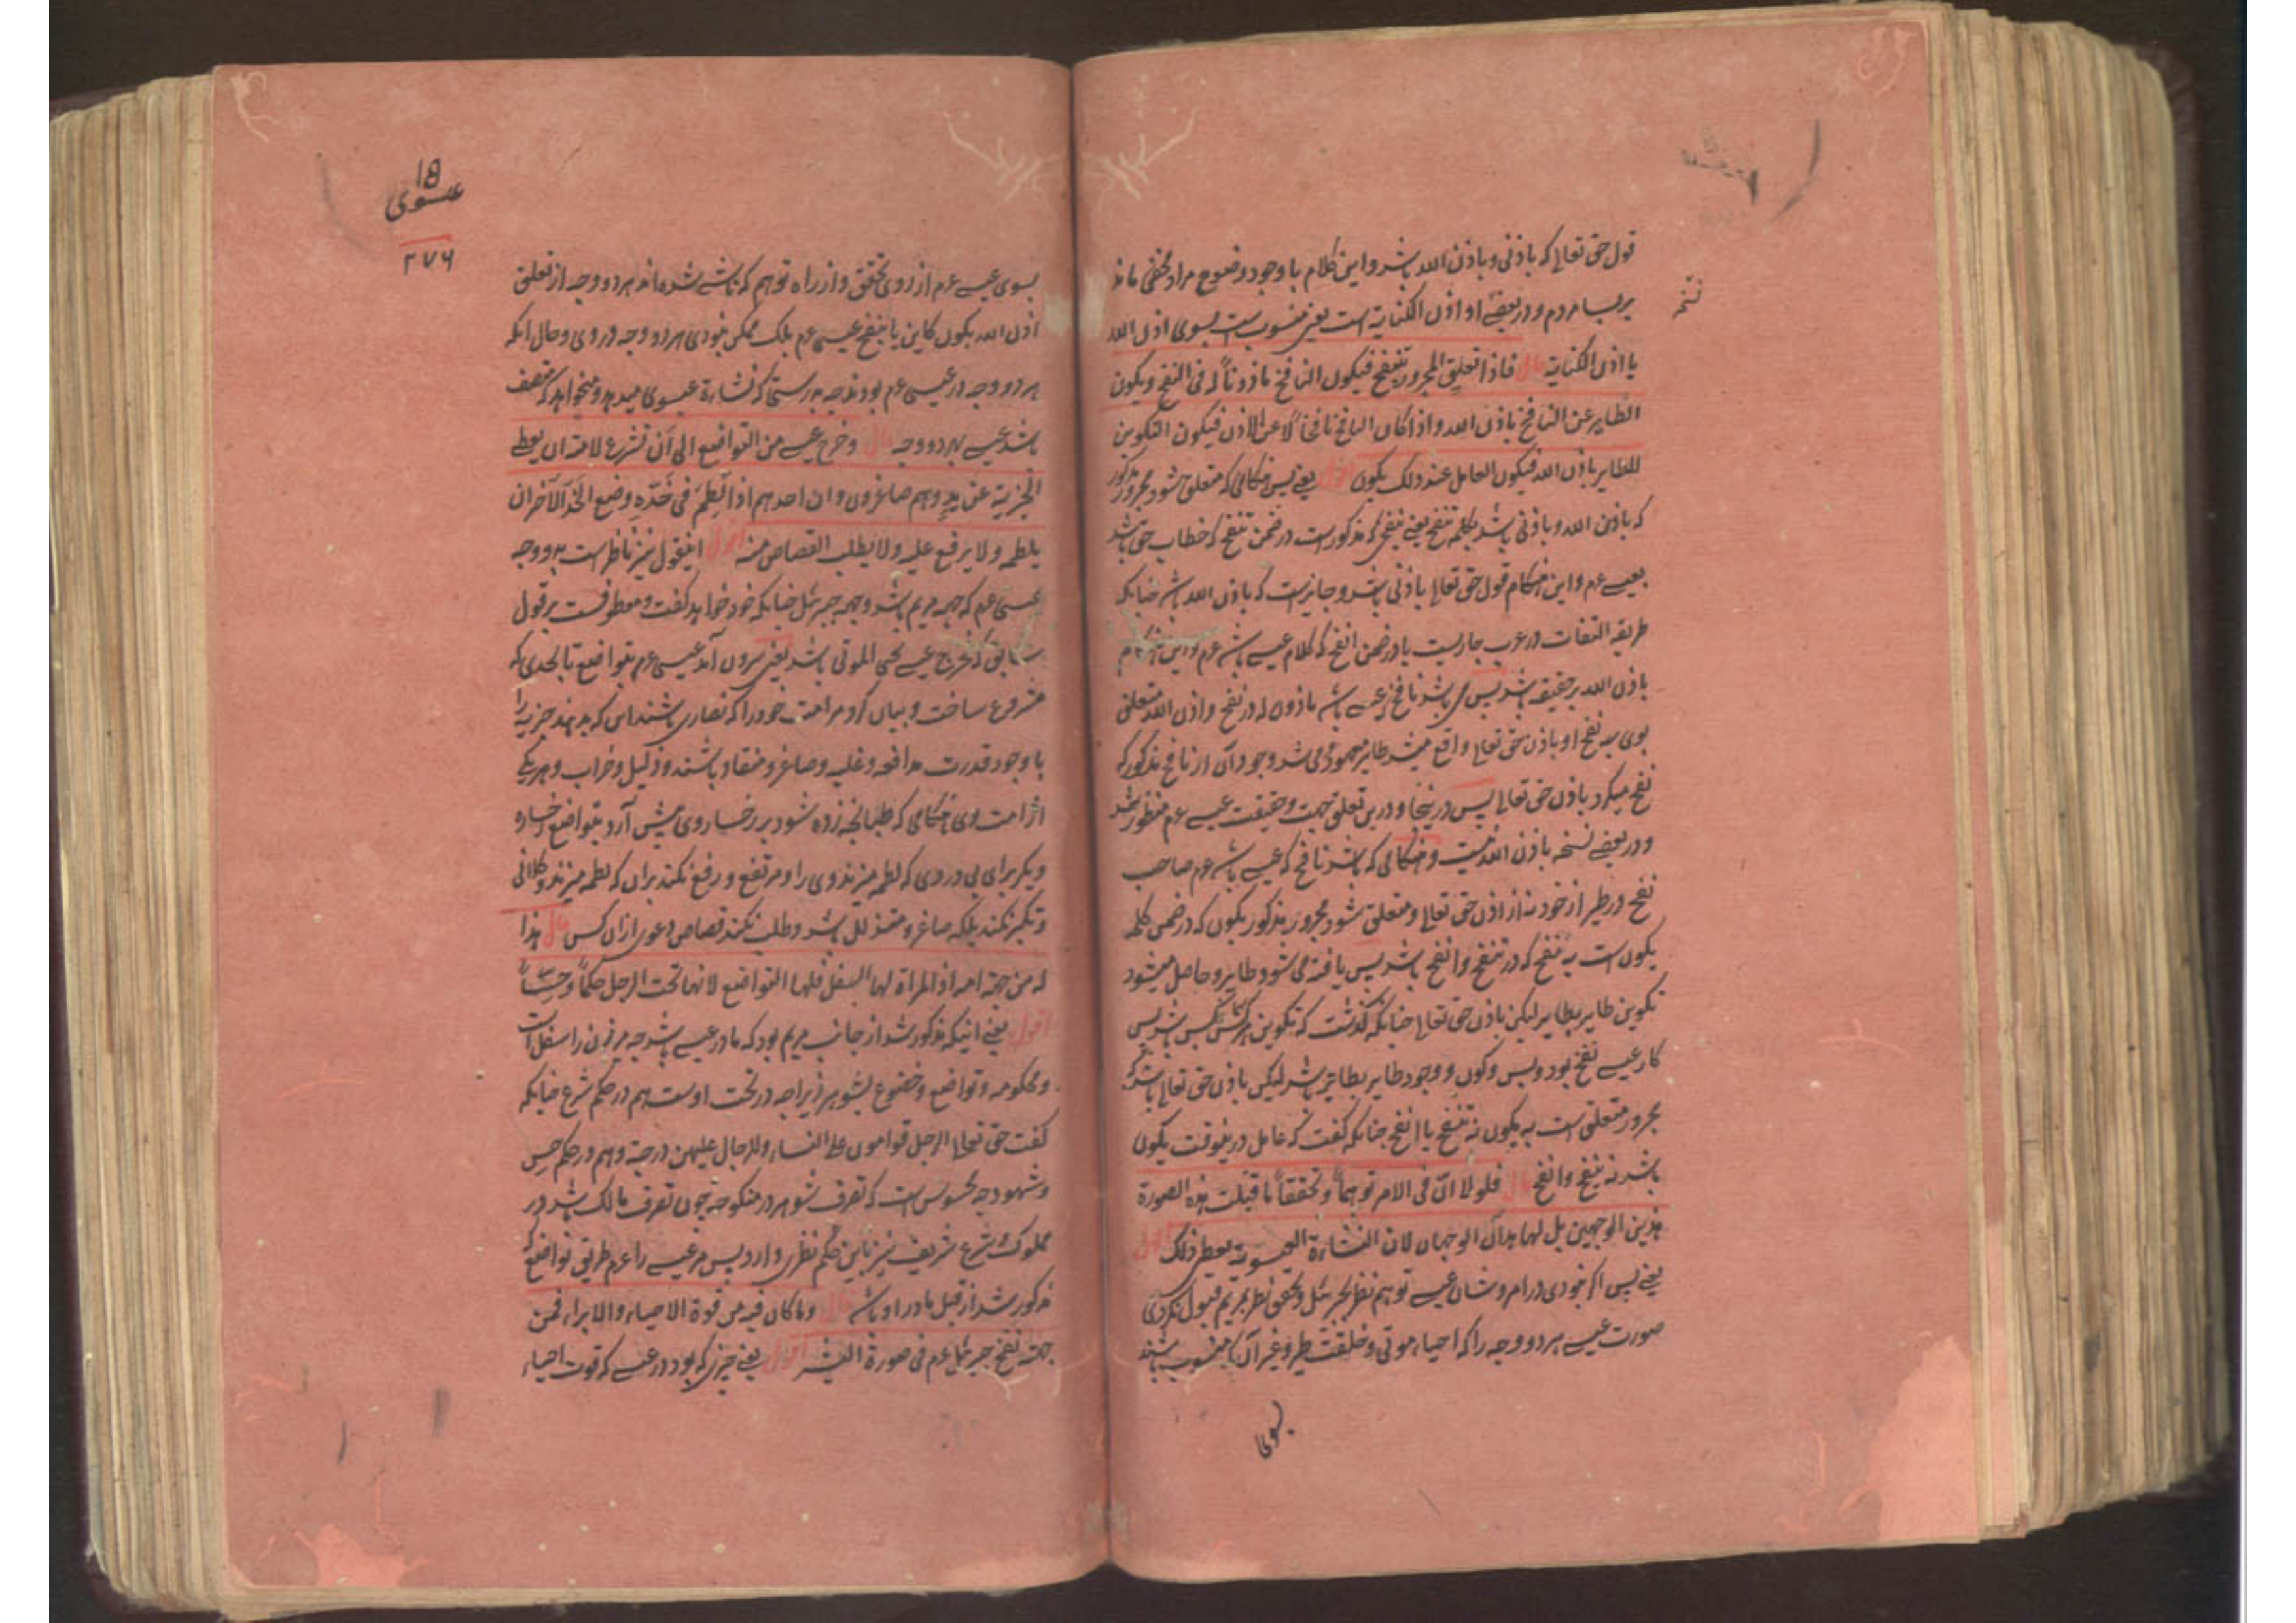 قول حق تعالی که باذنی و باذن الله باشد و این کلام با وجود وضوح مراد مخفی ماند
نسخه
بر بسیار مردم و در بعضی او اذن الکنایة است یعنی منسوبست بسوی اذن الله
یا اذن الکنایة قال فاذا تعلق المجرور بتنفخ فیکون النافخ ماذونا له فی النفخ ویکون
الطایر عن النافخ باذن الله و اذا کان النافخ نافخاً لا عن الاذن فیکون التکوین
للطایر باذن الله فیکون العامل عند ذلک یکون اقول یعنی پس هنگامی که متعلق شود مجرور مذکور
که باذن الله و باذنی باشد بکلمه تنفخ یعنی بنفخی که مذکورست در ضمن تنفخ که خطاب حق باشد
بعیسی عم و این هنگام قول حق تعالی باذنی باشد و جایزست که باذن الله باشد چنانکه
طریقه التفات در عرب جاریست یا در ضمن انفخ که کلام عیسی باشد عم و این هنگام
باذن الله بر حقیقه باشد پس می باشد نافخ که عیسی باشد ماذون له در نفخ و اذن الله متعلق
بوی به نفخ او باذن حق تعالی واقع میشد طایر موجود می شد وجود آن از نافخ مذکور که
نفخ میکرد باذن حق تعالی پس در ینجا و درین تعلق جهت و حقیقت عیسی عم منظور شد
و در بعضی نسخه باذن الله نیست و هنگامی که باشد نافخ که عیسی باشد عم صاحب
نفخ در طیر از خود نه از اذن حق تعالی و متعلق شود مجرور مذکور بکون که در ضمن کلمه
یکون است نه نفخ که در تنفخ و انفخ باشد پس یافته می شود طایر و حاصل میشود
تکوین طایر بطایر لیکن باذن حق تعالی چنانکه گذشت که تکوین هر کس بکس باشد پس
کار عیسی نفخ بود و بس و کون و وجود طایر بطایر باشد لیکن باذن حق تعالی باشد که
مجرور متعلق است به یکون نه تنفخ یا انفخ چنانکه گفت که عامل درینوقت یکون
باشد نه تنفخ و انفخ قال فلولا ان فی الامر توهماً و تحققاً ما قبلت هذه الصورة
هذین الوجهین بل لها هذان الوجهان لان النشاءة العیسویة یعطی ذلک اقول
یعنی پس اگر نبودی در امر و شان عیسی توهم نظر بجبرئیل و تحقق نظر بمریم قبول نکردی
صورت عیسی هر دو وجه را که احیاء موتی و خلقت طیر و غیر آن که منسوب باشند
بسوی
18
عیسوی
۲۷۶
بسوی عیسی عم از روی تحقق و از راه توهم که ناشی شده اند هر دو وجه از تعلق
اذن الله بکون کاین یا بنفخ عیسی عم بلک ممکن نبودی هر دو وجه در وی و حال آنکه
هر دو وجه در عیسی عم بودند چه بدرستی که نشاءة عیسوی میدهد و میخواهد که متصف
باشد عیسی بهر دو وجه قال و خرج عیسی من التواضع الی ان تشرع لامته ان یعطی
الجزیة عن ید وهم صاغرون و ان احدهم اذا لطم فی خده وضع الخد الآخر لمن
یلطمه ولا یرفع علیه ولا یطلب القصاص منه اقول اینقول نیز ناظر است بدو وجه
عیسی عم که جهه مریم باشد و جهه جبرئیل چنانکه خود خواهد گفت و معطوفست بر قول
سابق که فخرج عیسی یحیی الموتی باشد یعنی بیرون آمد عیسی عم بتواضع تا بحدی که
مشروع ساخت و بیان کرد مر امت خود را که نصاری باشند این که بدهند جزیه را
با وجود قدرت مدافعه و غلبه و صاغر و منقاد باشند و ذلیل و خراب و هر یکی
از امت وی هنگامی که طپانچه زده شود بر رخسار وی پیش آرد بتواضع رخساره
دیگر برای بی دردی که لطمه میزند وی را و مرتفع و رفع نکند بر آن که لطمه میزند و کلانی
و تکبر نکند بلکه صاغر و متذلل باشد و طلب نکند قصاص و عوض از آن کس قال هذا
له من جهة امه اذ المراة لها السفل فلها التواضع لانها تحت الرجل حکماً و حساً
اقول یعنی اینکه مذکور شد از جانب مریم بود که مادر عیسی باشد چه مر زن را سفل است
و محکومه و تواضع و خضوع بشوهر زیرا چه در تحت اوست هم در حکم شرع چنانکه
گفت حق تعالی الرجل قوامون علی النساء وللرجال علیهن درجة و هم در حکم حس
و شهود چه محسوس است که تصرف شوهر در منکوحه چون تصرف مالک باشد در
مملوک و شرع شریف نیز باین حکم نظری دارد پس مر عیسی را عم طریق تواضع که
مذکور شد از قبل مادر او باشد قال وما کان فیه من قوة الاحیاء والابراء فمن
جهة نفخ جبرئیل عم فی صورة البشر اقول یعنی چیزی که بود در عیسی که قوت احیاء